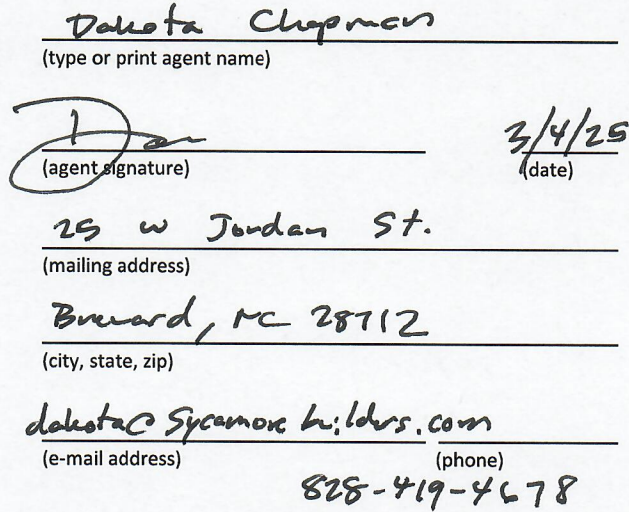 Dakota Chapman
(type or print agent name)
3/4/25
(agent signature) (date)
25 W Jordan St.
(mailing address)
Brevard, NC 28712
(city, state, zip)
dakota@Sycamorebuilders.com
(e-mail address) (phone)
828-419-4678